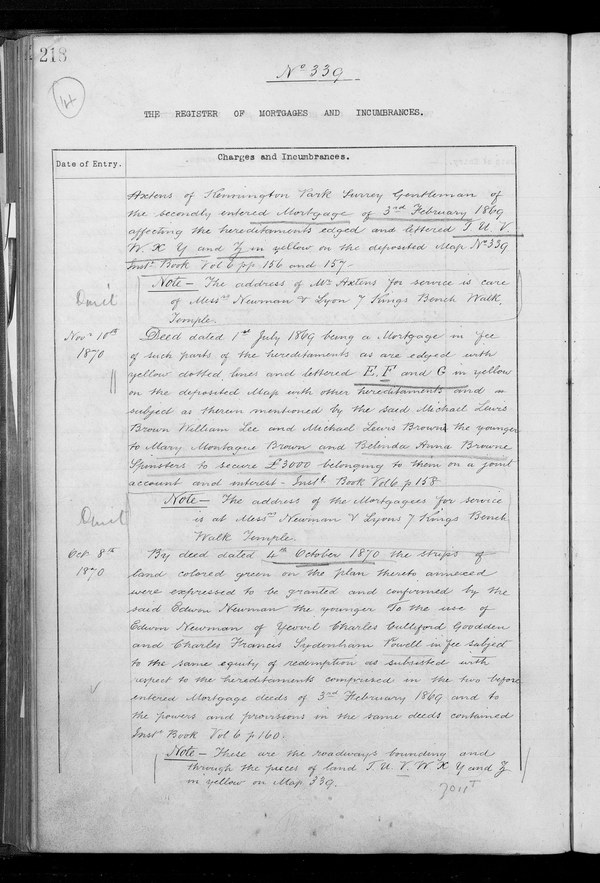 218
No 339
THE REGISTER OF MORTGAGES AND INCUMBRANCES.
Date of Entry.
Charges and Incumbrances.
Axtens of Kennington Park Surrey Gentleman of
the secondly entered Mortgage of 3rd February 1869
affecting the hereditaments edged and lettered T. U. V.
W. X Y and Z in yellow on the deposited Map No 339
Inst. Book Vol 6 pp 156 and 157-
Omit
Note - The address of Mr Axtens for service is care
of Messrs Newman & Lyon 7 Kings Bench Walk,
Temple.
Novr 10th
1870
Deed dated 1st July 1869 being a Mortgage in fee
of such parts of the hereditaments as are edged with
yellow dotted lines and lettered E. F and G in yellow
on the deposited Map with other hereditaments and
subject as therein mentioned by the said Michael Lewis
Brown William Lee and Michael Lewis Brown the younger
to Mary Montague Brown and Belinda Anna Browne
Spinsters to secure £3000 belonging to them on a joint
account and interest - Inst. Book Vol 6. p 158
Omit
Note - The address of the Mortgagees for service
is at Messrs Newman & Lyons 7 Kings Bench
Walk Temple.
Oct 8th
1870
By deed dated 4th October 1870 the strips of
land colored green on the plan thereto annexed
were expressed to be granted and confirmed by the
said Edwin Newman the younger To the use of
Edwin Newman of Yeovil Charles Culliford Goodden
and Charles Francis Sydenham Powell in fee subject
to the same equity of redemption as subsisted with
respect to the hereditaments comprised in the two before
entered Mortgage deeds of 3rd February 1869 and to
the powers and provisions in the same deeds contained
Inst. Book Vol 6 p 160.
Note - These are the roadways bounding and
through the pieces of land T. U. V. W X Y and Z
in yellow on Map 339.